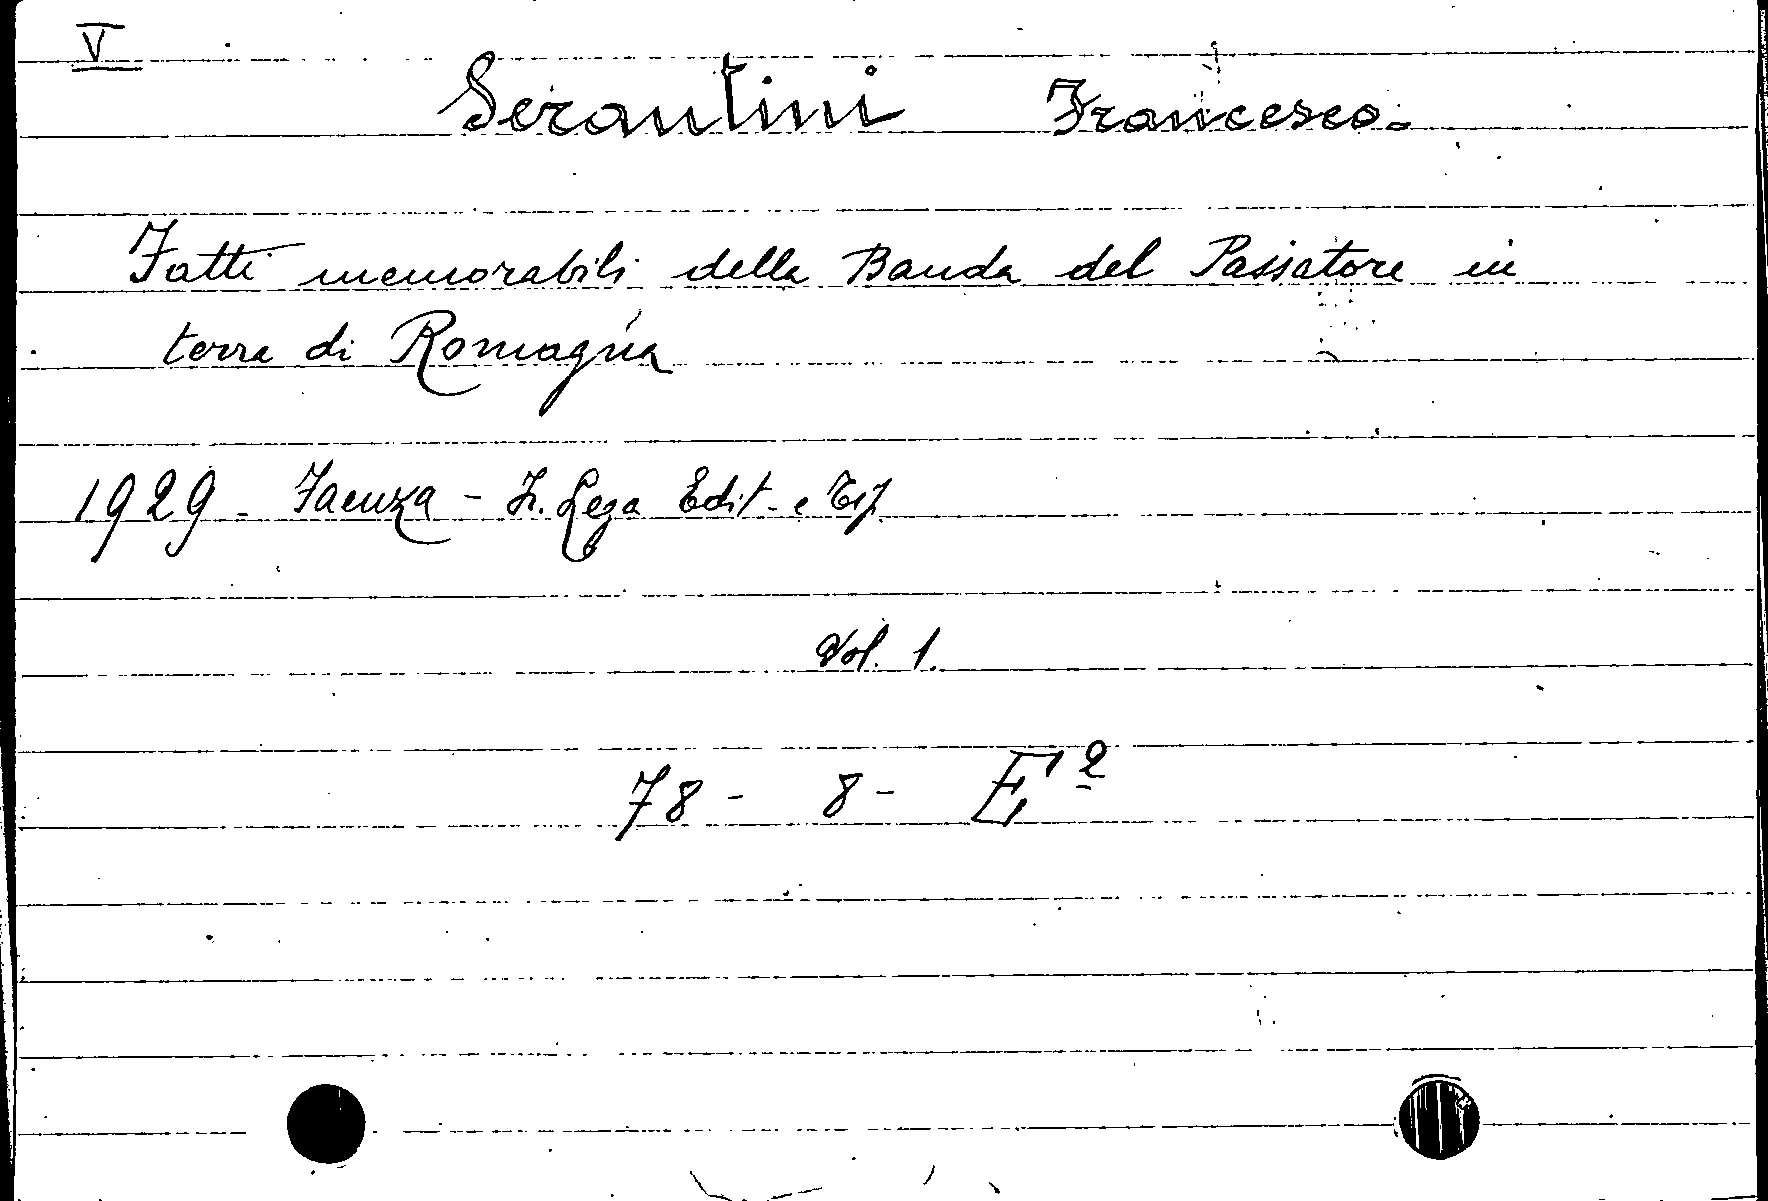 V
Serantini Francesco.
Fatti memorabili della Banda del Passatore in
terra di Romagna
1929 - Faenza - F. Lega Edit. e Tip.
Vol. 1.
78 - 8 - E²